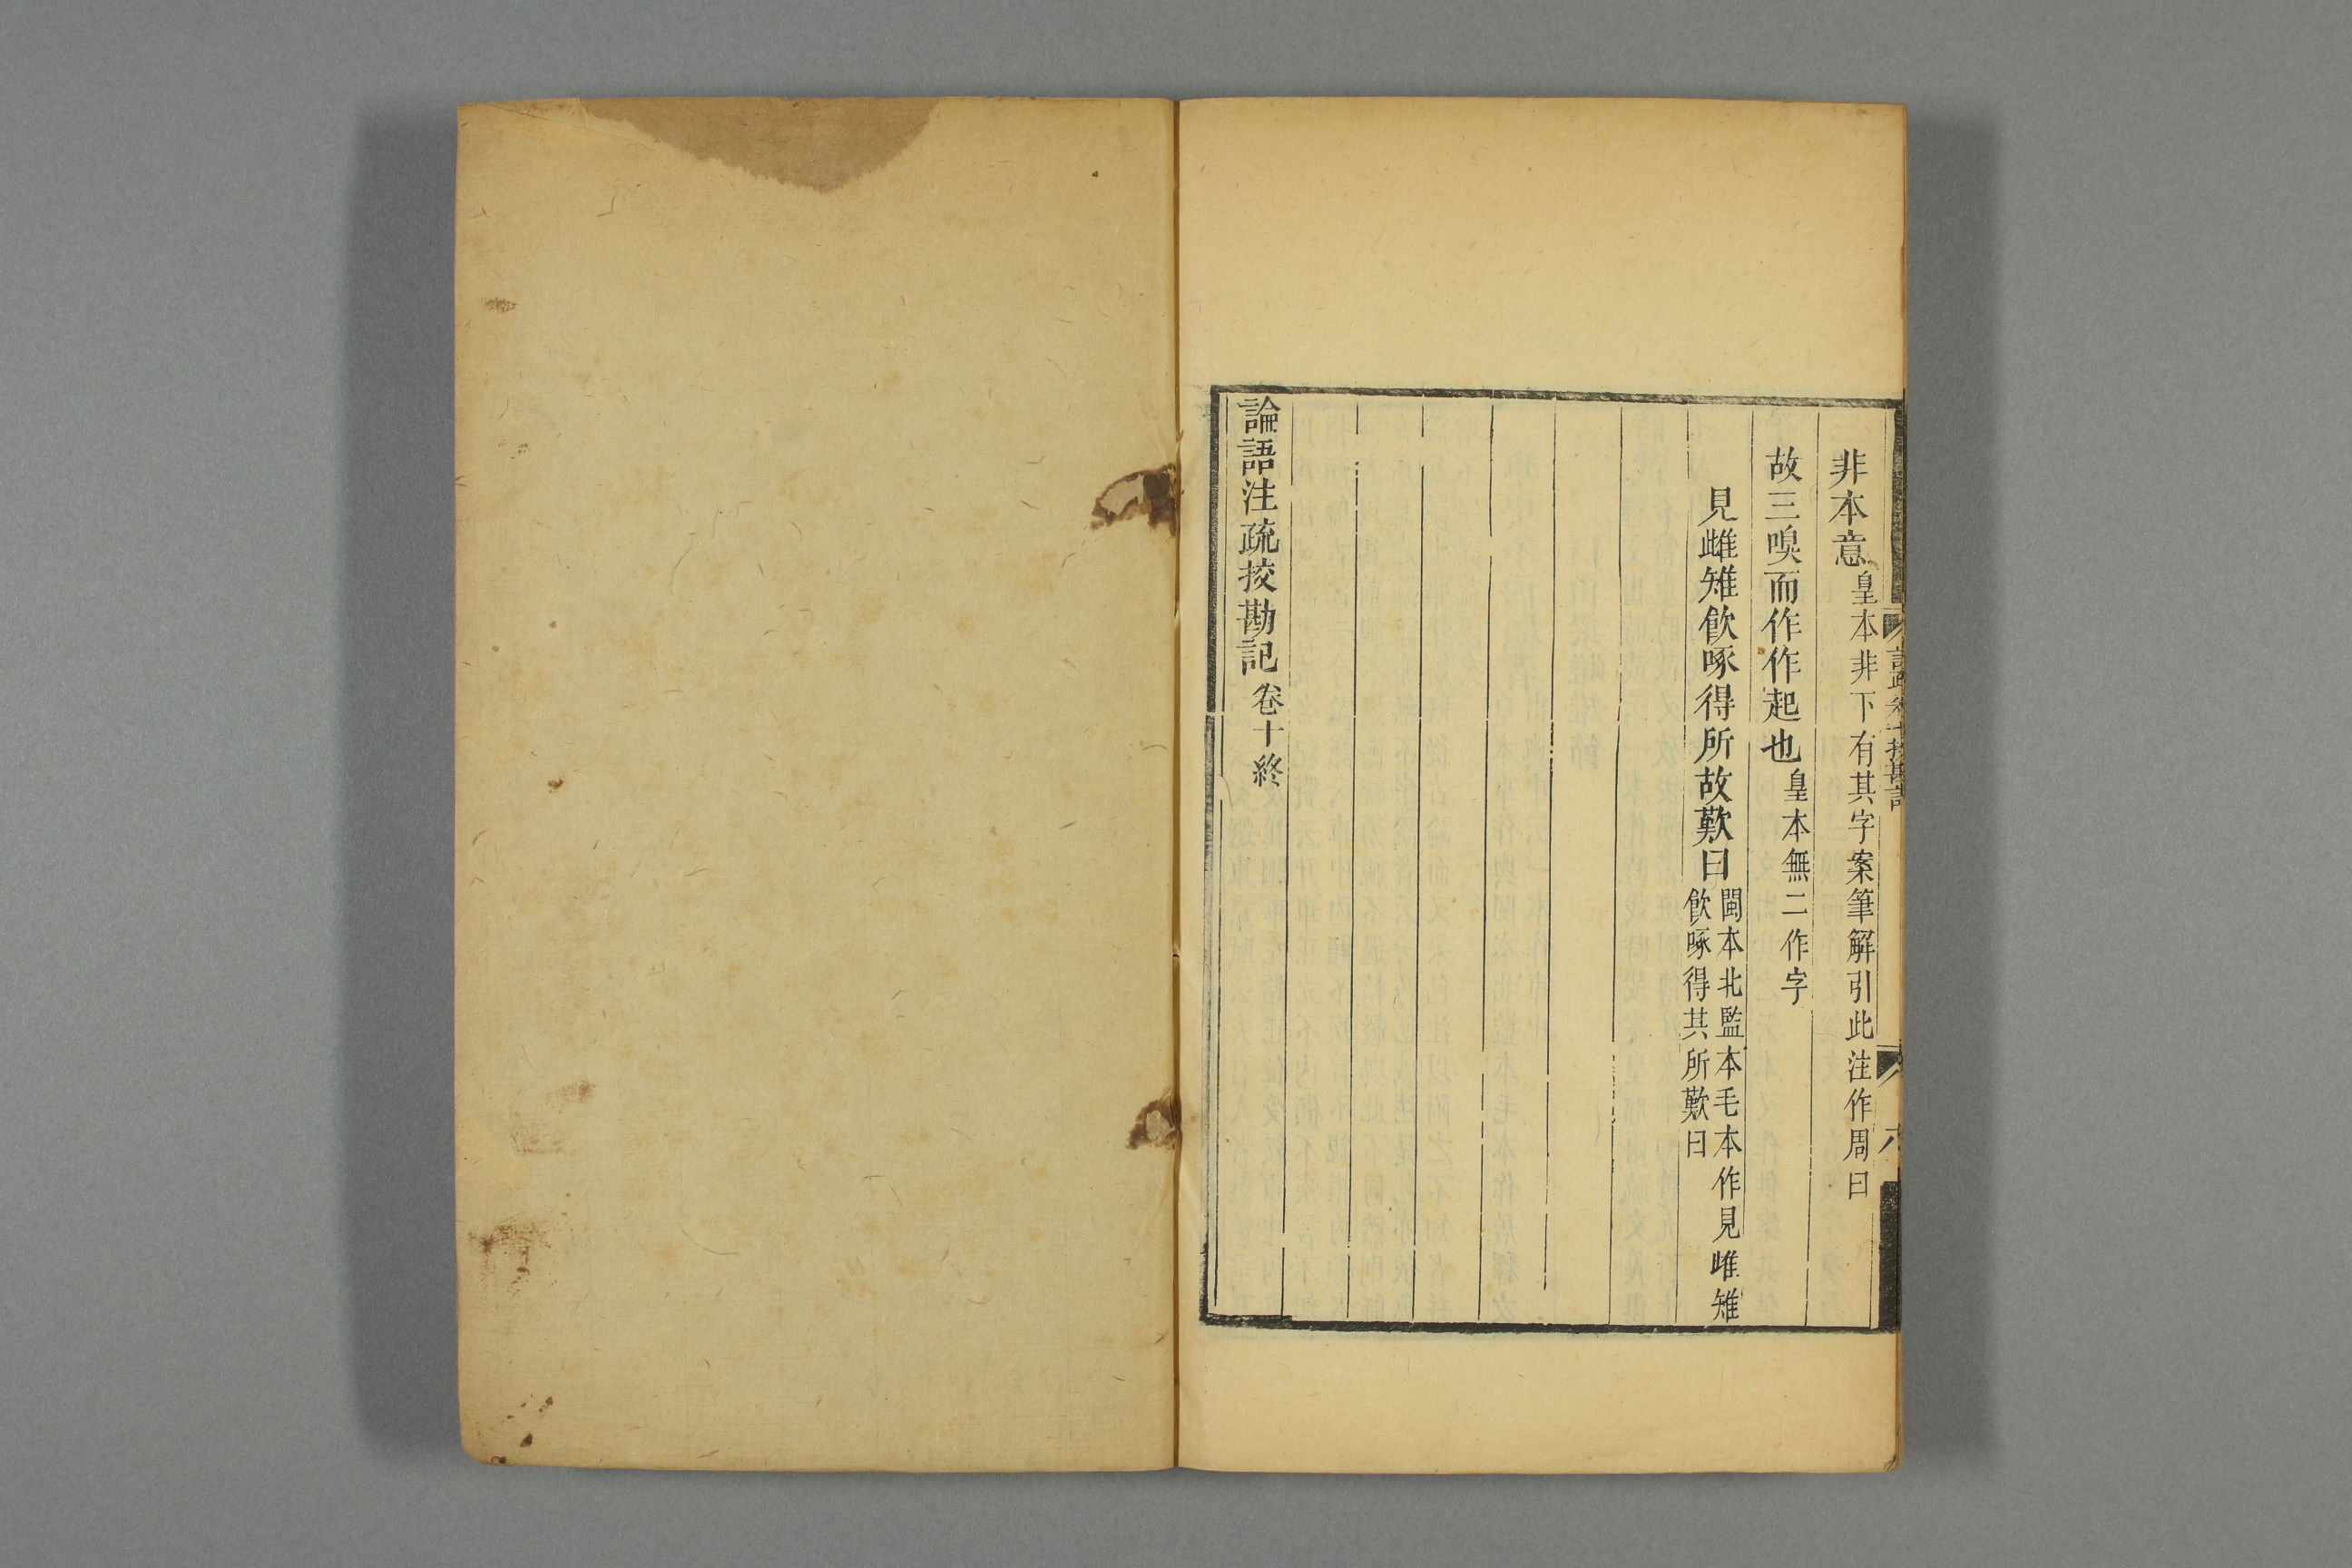 非本意皇本非下有其字案筆解引此注作周曰
故三嗅而作作起也皇本無二作字
見雌雉飲啄得所故歎曰閩本北監本毛本作見雌雉
飲啄得其所歎曰
論語注疏挍勘記卷十終